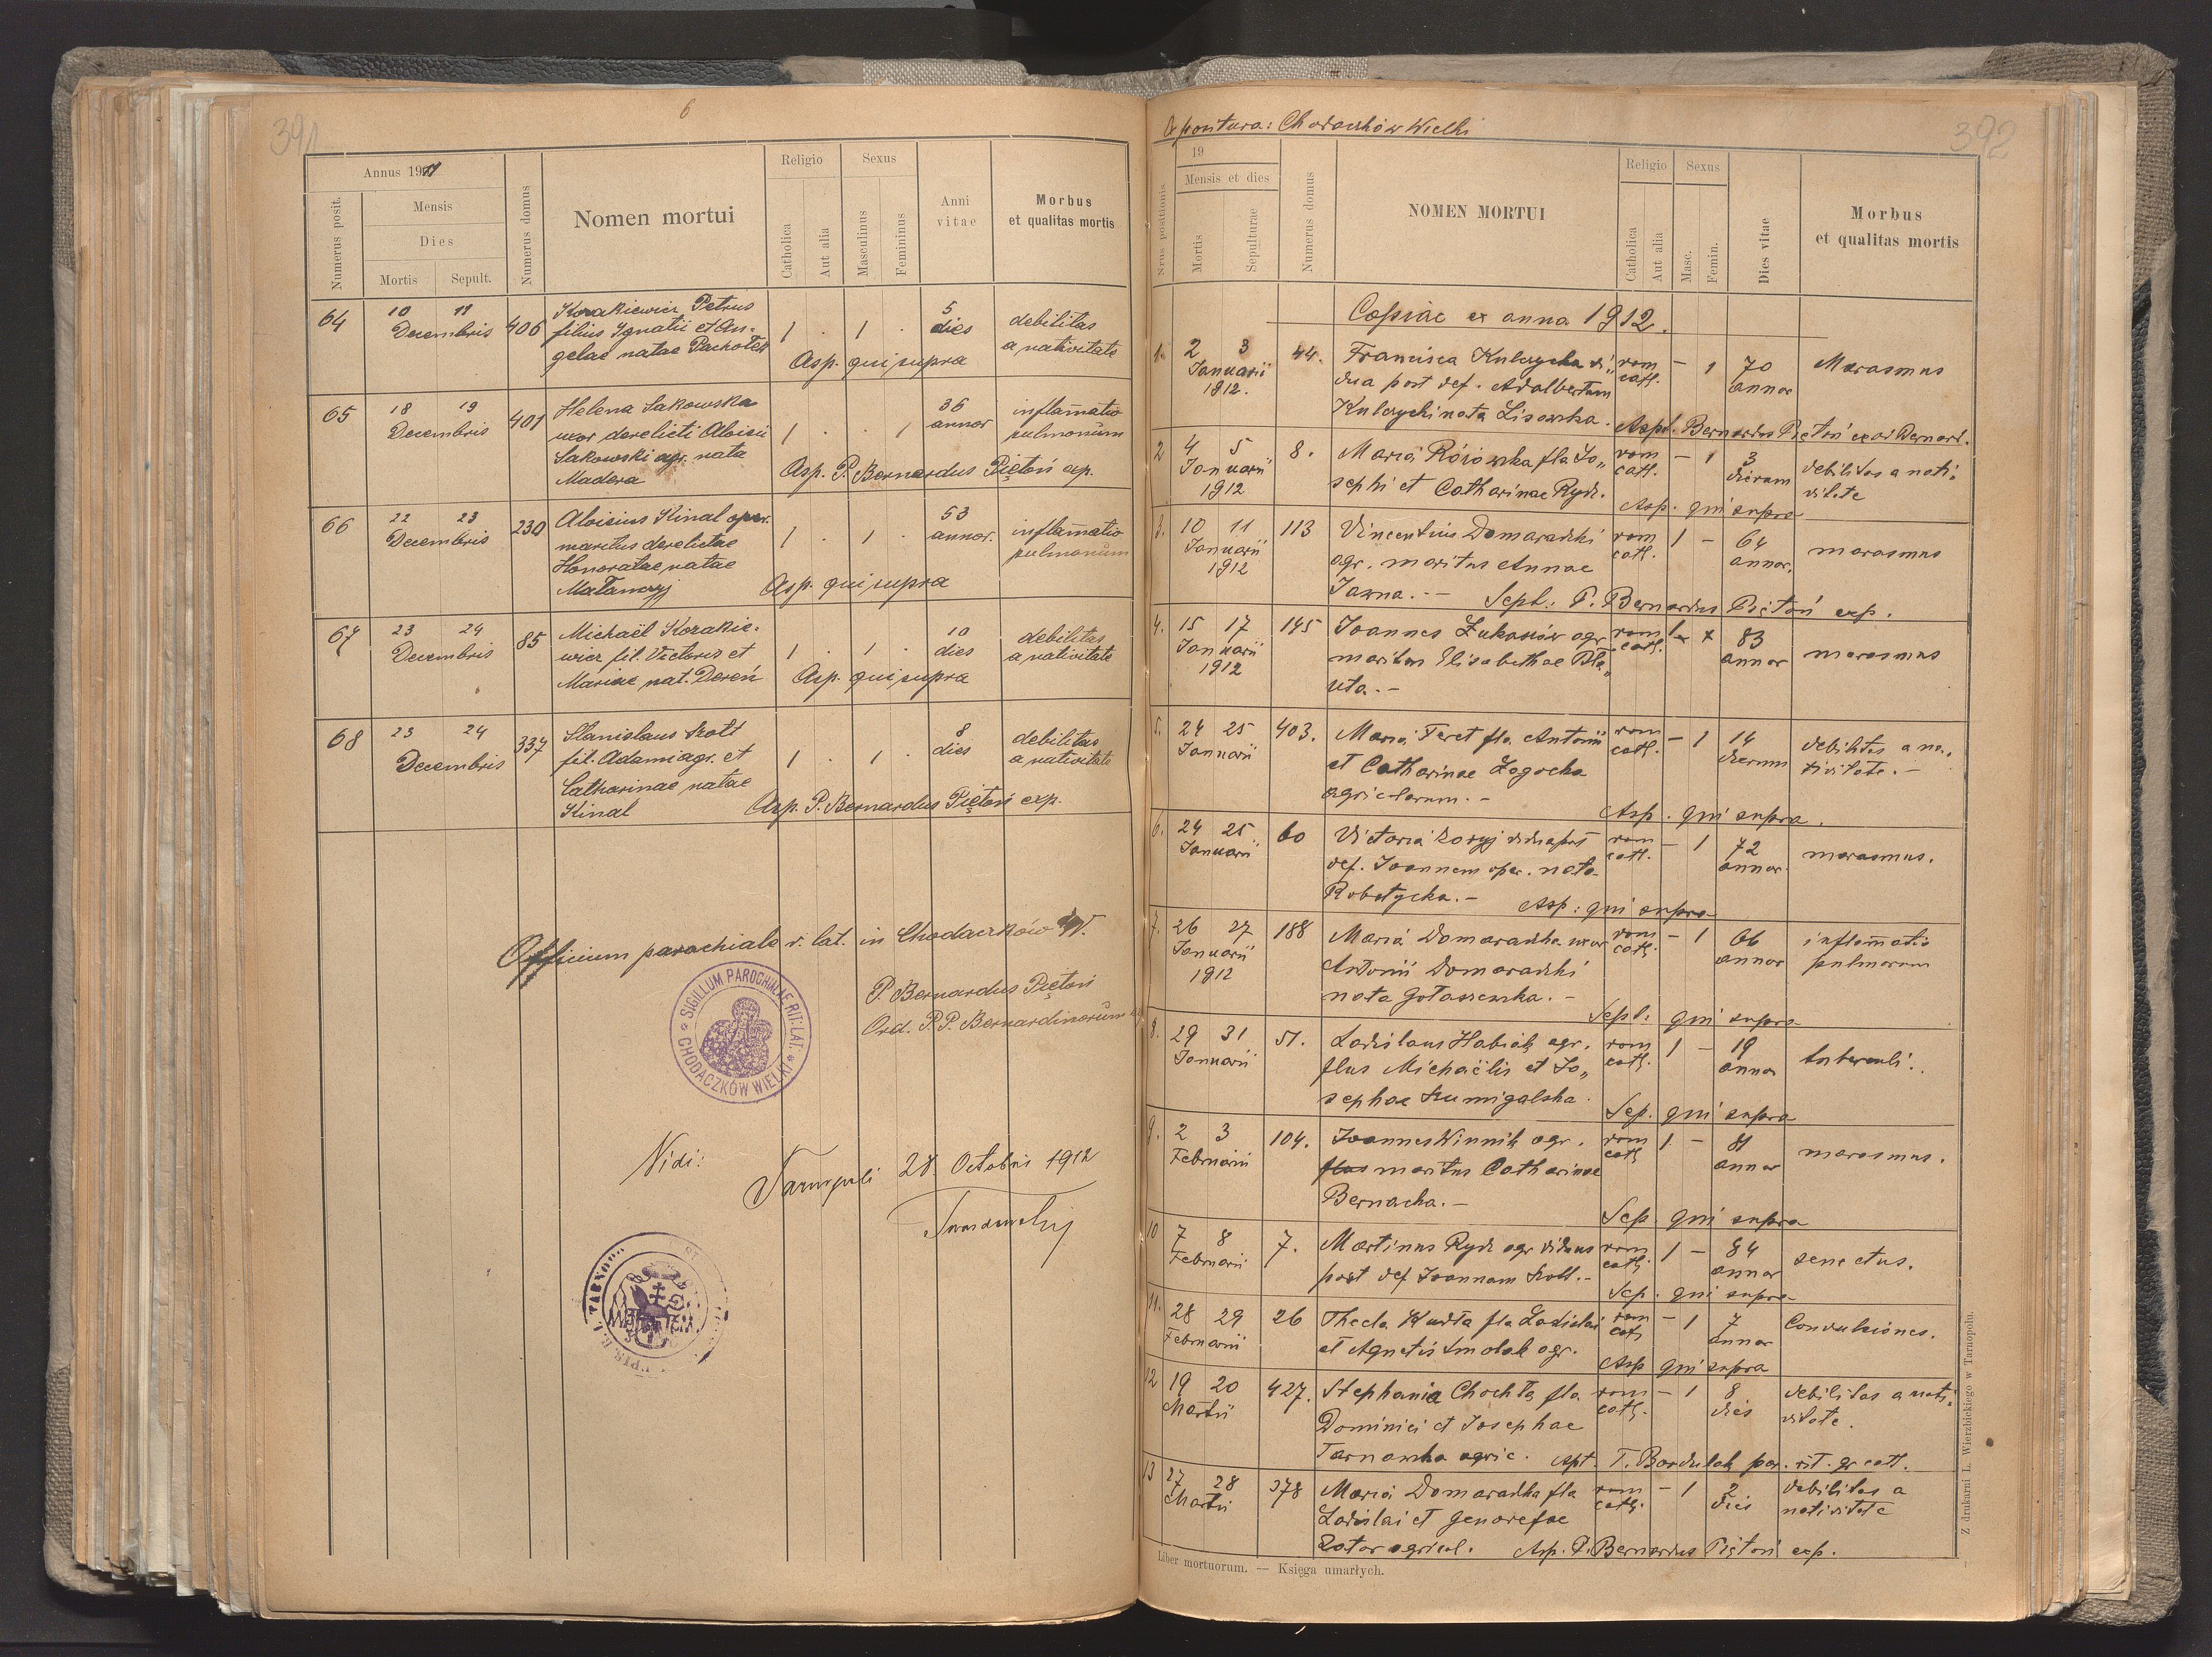 391
6
Annus 1911
Numerus posit.
Mensis
Dies
Mortis
Sepult.
Numerus domus
Nomen mortui
Religio
Catholica
Aut alia
Sexus
Masculinus
Femininus
Anni
vitae
Morbus
et qualitas mortis
64 10 11 Decembris 406
Korakiewicz Petrus
filius Ignatii et An-
gelae natae Pachotek
1 . 1 . 5 dies
debilitas
a nativitate
Asp. qui supra
65 18 19 Decembris 401
Helena Sakowska
uxor derelicti Aloisii
Sakowski agr. nata
Madera
1 . . 1 36 annor
inflam̄atio
pulmonum
Asp. P. Bernardus Piętoń exp.
66 22 23 Decembris 230
Aloisius Kinal oper.
maritus derelictae
Honoratae natae
Matanczyj
1 . 1 . 53 annor.
inflam̄atio
pulmonum
Asp. qui supra
67 23 24 Decembris 85
Michaël Korakie-
wicz fil. Victoris et
Mariae nat. Dereń
1 . 1 . 10 dies
debilitas
a nativitate
Asp. qui supra
68 23 24 Decembris 337
Stanislaus Kott
fil. Adami agr. et
Catharinae natae
Kinal
1 . 1 . 8 dies
debilitas
a nativitate
Asp. P. Bernardus Piętoń exp.
Officium parochiale r. lat. in Chodaczków W.
P. Bernardus Piętoń
Ord. P.P. Bernardinorum
SIGILLUM PAROCHIALE RIT: LAT.
CHODACZKÓW WIELKI
Vidi:
Tarnopoli 28 Octobris 1912
392
Expositura: Chodaczków Wielki
Nrus positionis
19
Mensis et dies
Mortis
Sepulturae
Numerus domus
NOMEN MORTUI
Religio
Catholica
Aut alia
Sexus
Masc.
Femin.
Dies vitae
Morbus
et qualitas mortis
Copiae ex anno 1912.
1. 2 3 Januarii 1912. 44.
Francisca Kulczycka vi„
dua post def. Adalbertum
Kulczycki nata Lisowska.
rom cath. - 1 70 annor
Marasmus
Aspt. Bernardus Piętoń ex ord Bernard.
2 4 5 Januarii 1912 8.
Maria Rózowska fla Jo„
sephi et Catharinae Rydz.
rom cath. - 1 3 dierum
debilitas a nati-
vitate
Asp. qui supra
3. 10 11 Januarii 1912 113
Vincentius Domaradzki
agr. maritus Annae
Jaxna. -
rom cath. 1 - 64 annor.
marasmus
Sept.: P. Bernardus Piętoń exp.
4. 15 17 Januarii 1912 145
Joannes Łukasiów agr
maritus Elisabethae Bła„
uta. -
rom cath. 1 83 annor
marasmus
5. 24 25 Januarii 403.
Maria Feret fla Antonii
et Catharinae Zagocka
agricolarum. -
rom cath. - 1 14 dierum
debilitas a na-
tivitate. -
Asp. qui supra.
6. 24 25 Januarii 60
Victoria Koryj vidua post
def. Joannem oper. nata
Robotycka. -
rom cath. - 1 72 annor
marasmus.
Asp: qui supra
7. 26 27 Januarii 1912 188
Maria Domaradzka uxor
Antonii Domaradzki
nata Gołaszewska. -
rom cath. - 1 66 annor
inflam̄atio
pulmonum
Sept: qui supra
8. 29 31 Januarii 51.
Ladislaus Habiak agr.
flus Michaëlis et Jo„
sephae Szumigalska.
rom cath. 1 - 19 annor
tuberculi.
Sep. qui supra
9. 2 3 Februarii 104.
Joannes Winnik agr.
flus maritus Catharinae
Bernacka. -
rom cath 1 - 81 annor
marasmus.
Sep. qui supra
10 7 8 Februarii 7.
Martinus Rydz agr viduus
post def Joannam Kott. -
rom cath. 1 - 84 annor
senectus.
Sep. qui supra
11. 28 29 Februarii 26
Thecla Kudła fla Ladislai
et Agnetis Smolak agr.
rom cath - 1 7 annor
Convulsiones.
Asp qui supra
12 19 20 Martii 427.
Stephania Chochła fla.
Dominici et Josephae
Tarnawska agric.
rom cath. - 1 8 dies
debilitas a nati-
vitate.
Aspt. T. Bordulak par. rit. gr cath.
13 27 28 Martii 378
Maria Domaradzka fla
Ladislai et Genovefae
Zator agricol.
rom cath. - 1 2 dies
debilitas a
nativitate
Asp. P. Bernardus Piętoń exp.
Liber mortuorum. — Księga umarłych.
Z drukarni L. Wierzbickiego w Tarnopolu.